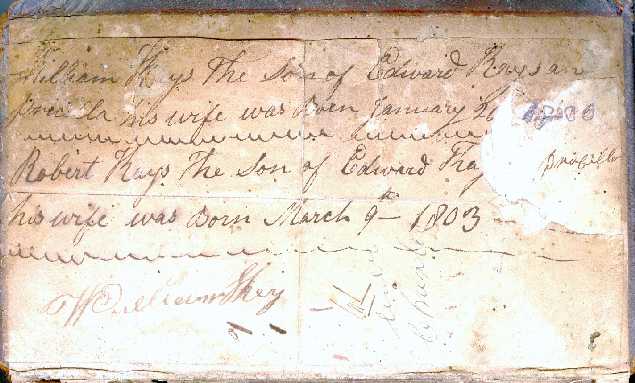 William Kays the son of Edward Kays an
his wife was Born January 2
Robert Kays The Son of Edward Kay
his wife was Born March 9th 1803
William Key